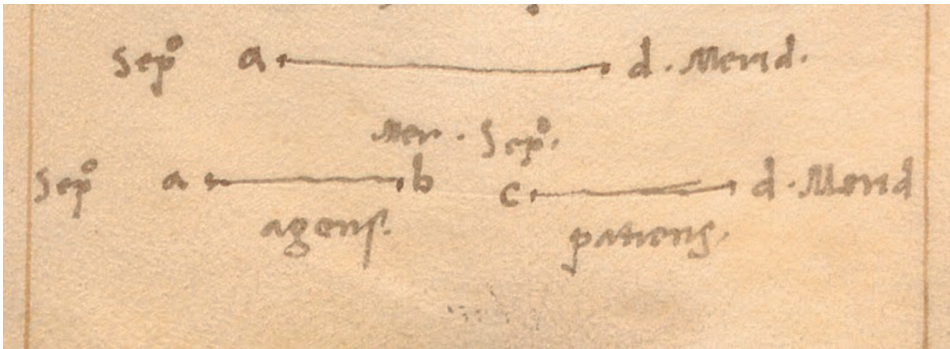 Sepº a d. Merid.
Mer. Sepº.
Sepº a b c d. Merid
agens. patiens.